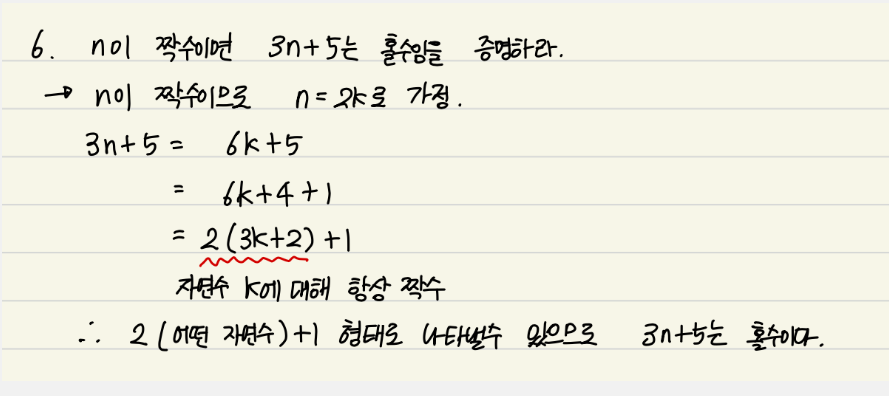 6. n이 짝수이면 3n+5는 홀수임을 증명하라.
→ n이 짝수이므로 n=2k로 가정.
3n+5 = 6k+5
= 6k+4+1
= 2(3k+2)+1
자연수 k에 대해 항상 짝수
∴ 2(어떤 자연수)+1 형태로 나타낼수 있으므로 3n+5는 홀수이다.